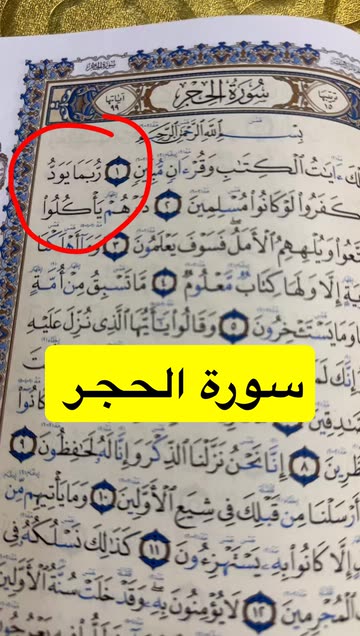 سُورَةُ الحِجْرِ
ترتيبها ١٥
آياتها ٩٩
بِسْمِ اللَّهِ الرَّحْمَٰنِ الرَّحِيمِ
ءَايَٰتُ الْكِتَٰبِ وَقُرْءَانٍ مُّبِينٍ ١ رُّبَمَا يَوَدُّ
كَفَرُوا لَوْ كَانُوا مُسْلِمِينَ ٢ ذَرْهُمْ يَأْكُلُوا
وَيُلْهِهِمُ الْأَمَلُ فَسَوْفَ يَعْلَمُونَ ٣ وَمَا أَهْلَكْنَا
إِلَّا وَلَهَا كِتَابٌ مَّعْلُومٌ ٤ مَّا تَسْبِقُ مِنْ أُمَّةٍ
وَمَا يَسْتَـْٔخِرُونَ ٥ وَقَالُوا يَٰٓأَيُّهَا الَّذِي نُزِّلَ عَلَيْهِ
إِنَّكَ
سورة الحجر
٨ إِنَّا نَحْنُ نَزَّلْنَا الذِّكْرَ وَإِنَّا لَهُ لَحَٰفِظُونَ ٩
أَرْسَلْنَا مِن قَبْلِكَ فِي شِيَعِ الْأَوَّلِينَ ١٠ وَمَا يَأْتِيهِم مِّن
إِلَّا كَانُوا بِهِ يَسْتَهْزِءُونَ ١١ كَذَٰلِكَ نَسْلُكُهُ فِي
الْمُجْرِمِينَ ١٢ لَا يُؤْمِنُونَ بِهِ وَقَدْ خَلَتْ سُنَّةُ الْأَوَّلِينَ